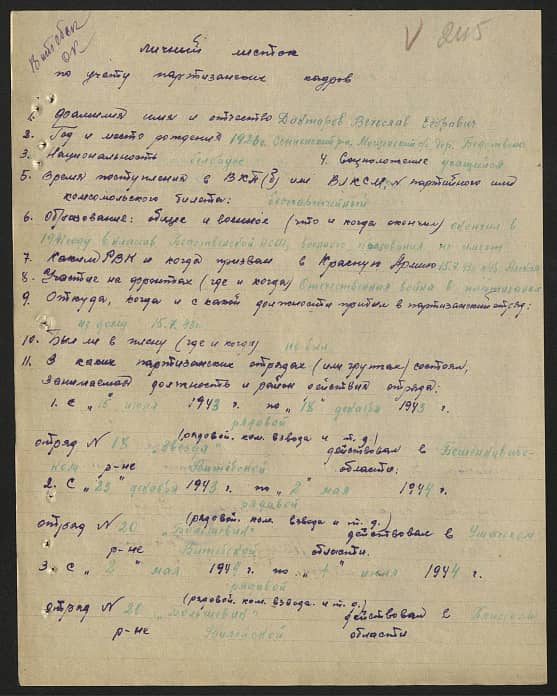 Витебск
V 245
личный листок
по учету партизанских кадров
1. Фамилия имя и отчество Дохтаров Вечеслав Егоравич
2. Год и место рождения 1926г. Сенненский р. дер.
3. Национальность белорус 4. Соцположение учащийся
5. Время поступления в ВКП(б) или ВЛКСМ, N партийного или
комсомольского билета: беспартийный
6. Образование: общее и военное (что и когда окончил) окончил в
1941 году классов НСШ, военного не имеет
7. Каким РВК и когда призван в Красную Армию 15.7.43
8. Участие на фронтах (где и когда) Отечественная война в партизанах
9. Откуда, когда и с какой должности прибыл в партизанский отряд:
из дому 15.7.43г.
10. Был ли в плену (где и когда) не был
11. В каких партизанских отрядах (или группах) состоял,
занимаемая должность и район действия отряда:
1. С "15" июля 1943 г. по "18" декабря 1943 г.
рядовой
(рядовой. ком. взвода и т. д.)
отряд N 18 "Звезда" действовал в Бешенкович-
ском р-не Витебской области.
2. С "23" декабря 1943 г. по "2" мая 1944 г.
рядовой
(рядовой. ком. взвода и т. д.)
отряд N 20 "Большевик" действовал в Ушачском
р-не Витебской области.
3. С "2" мая 1944 г. по июля 1944 г.
рядовой
(рядовой. ком. взвода. и т. д.)
отряд N 20 "Большевик" действовал в
р-не Вилейской области